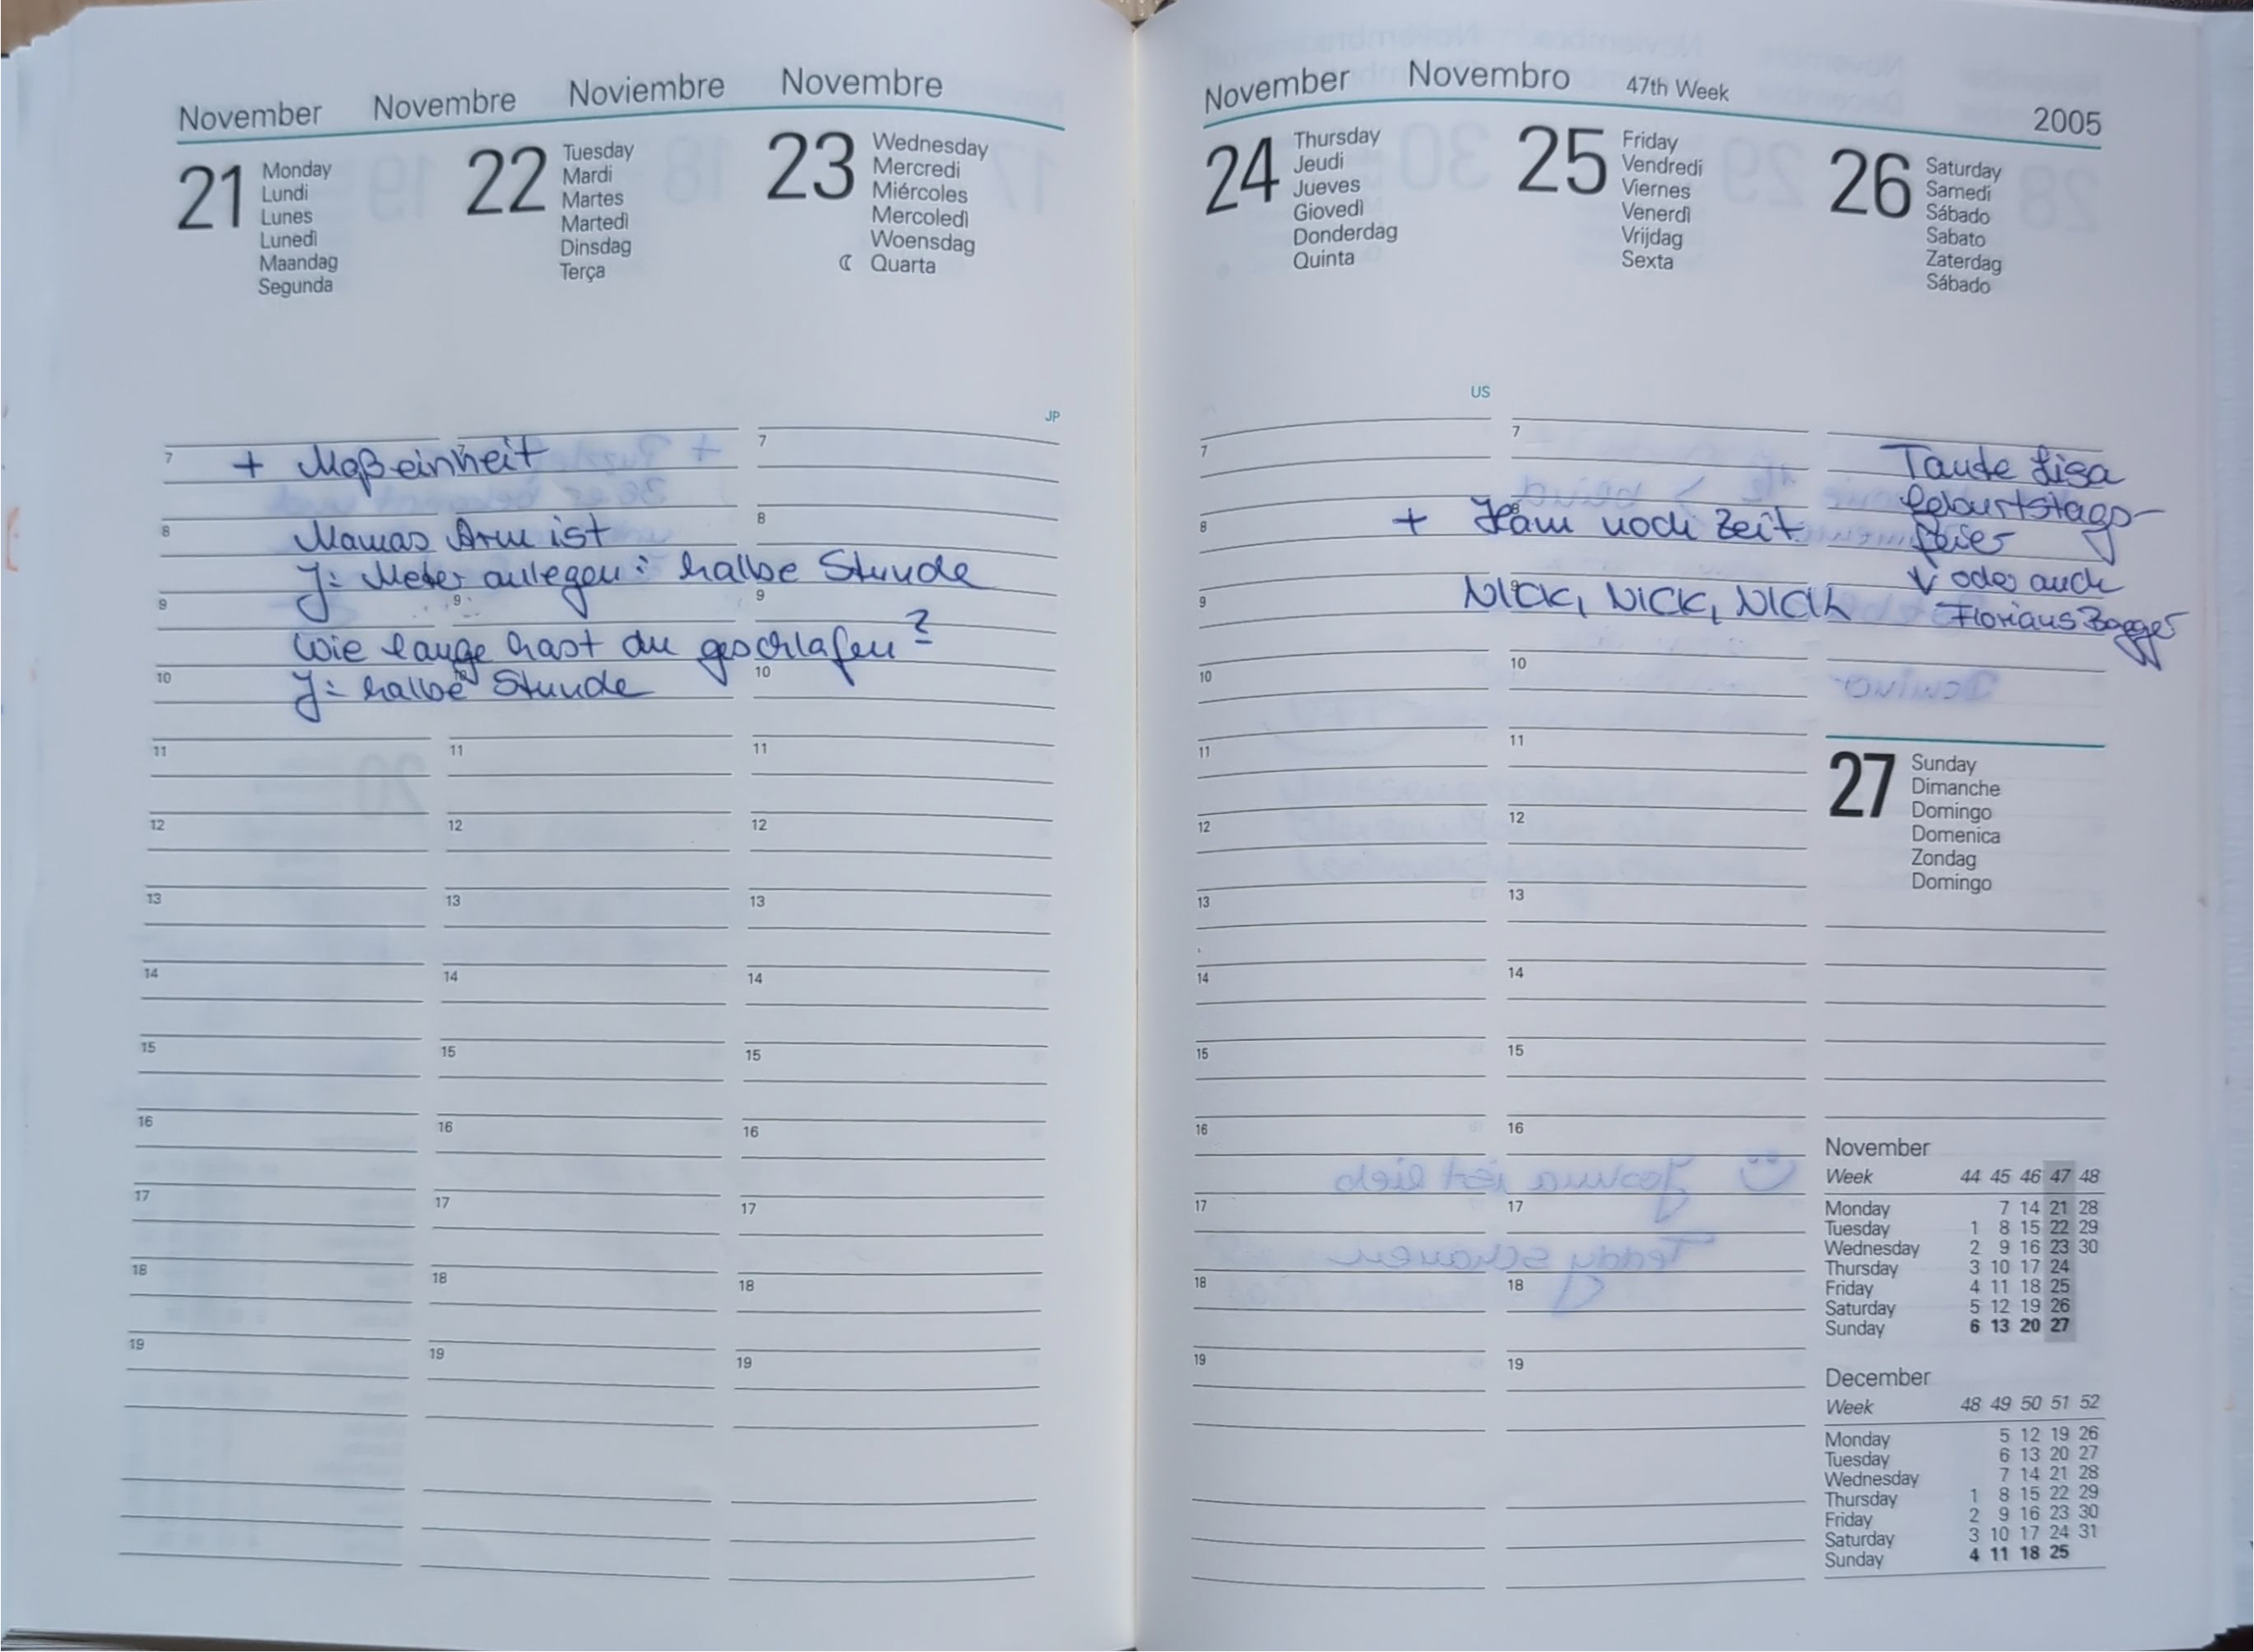 November Novembre Noviembre Novembre
21 Monday
Lundi
Lunes
Lunedì
Maandag
Segunda
22 Tuesday
Mardi
Martes
Martedì
Dinsdag
Terça
23 Wednesday
Mercredi
Miércoles
Mercoledì
Woensdag
Quarta
JP
+ Maßeinheit
Mamas Arm ist
J: Meter anlegen: halbe Stunde
Wie lange hast du geschlafen?
J: halbe Stunde
7 7
8 8
9 9 9
10 10 10
11 11 11
12 12 12
13 13 13
14 14 14
15 15 15
16 16 16
17 17 17
18 18 18
19 19 19
November Novembro 47th Week 2005
24 Thursday
Jeudi
Jueves
Giovedì
Donderdag
Quinta
25 Friday
Vendredi
Viernes
Venerdì
Vrijdag
Sexta
26 Saturday
Samedi
Sábado
Sabato
Zaterdag
Sábado
US
+ noch Zeit
NICK, NICK, NICK
Tante Lisa
Geburtstags-
feier
oder auch
Florians Bagger
7 7
8 8
9 9
10 10
11 11
12 12
13 13
14 14
15 15
16 16
17 17
18 18
19 19
27 Sunday
Dimanche
Domingo
Domenica
Zondag
Domingo
November
Week 44 45 46 47 48
Monday 7 14 21 28
Tuesday 1 8 15 22 29
Wednesday 2 9 16 23 30
Thursday 3 10 17 24
Friday 4 11 18 25
Saturday 5 12 19 26
Sunday 6 13 20 27
December
Week 48 49 50 51 52
Monday 5 12 19 26
Tuesday 6 13 20 27
Wednesday 7 14 21 28
Thursday 1 8 15 22 29
Friday 2 9 16 23 30
Saturday 3 10 17 24 31
Sunday 4 11 18 25